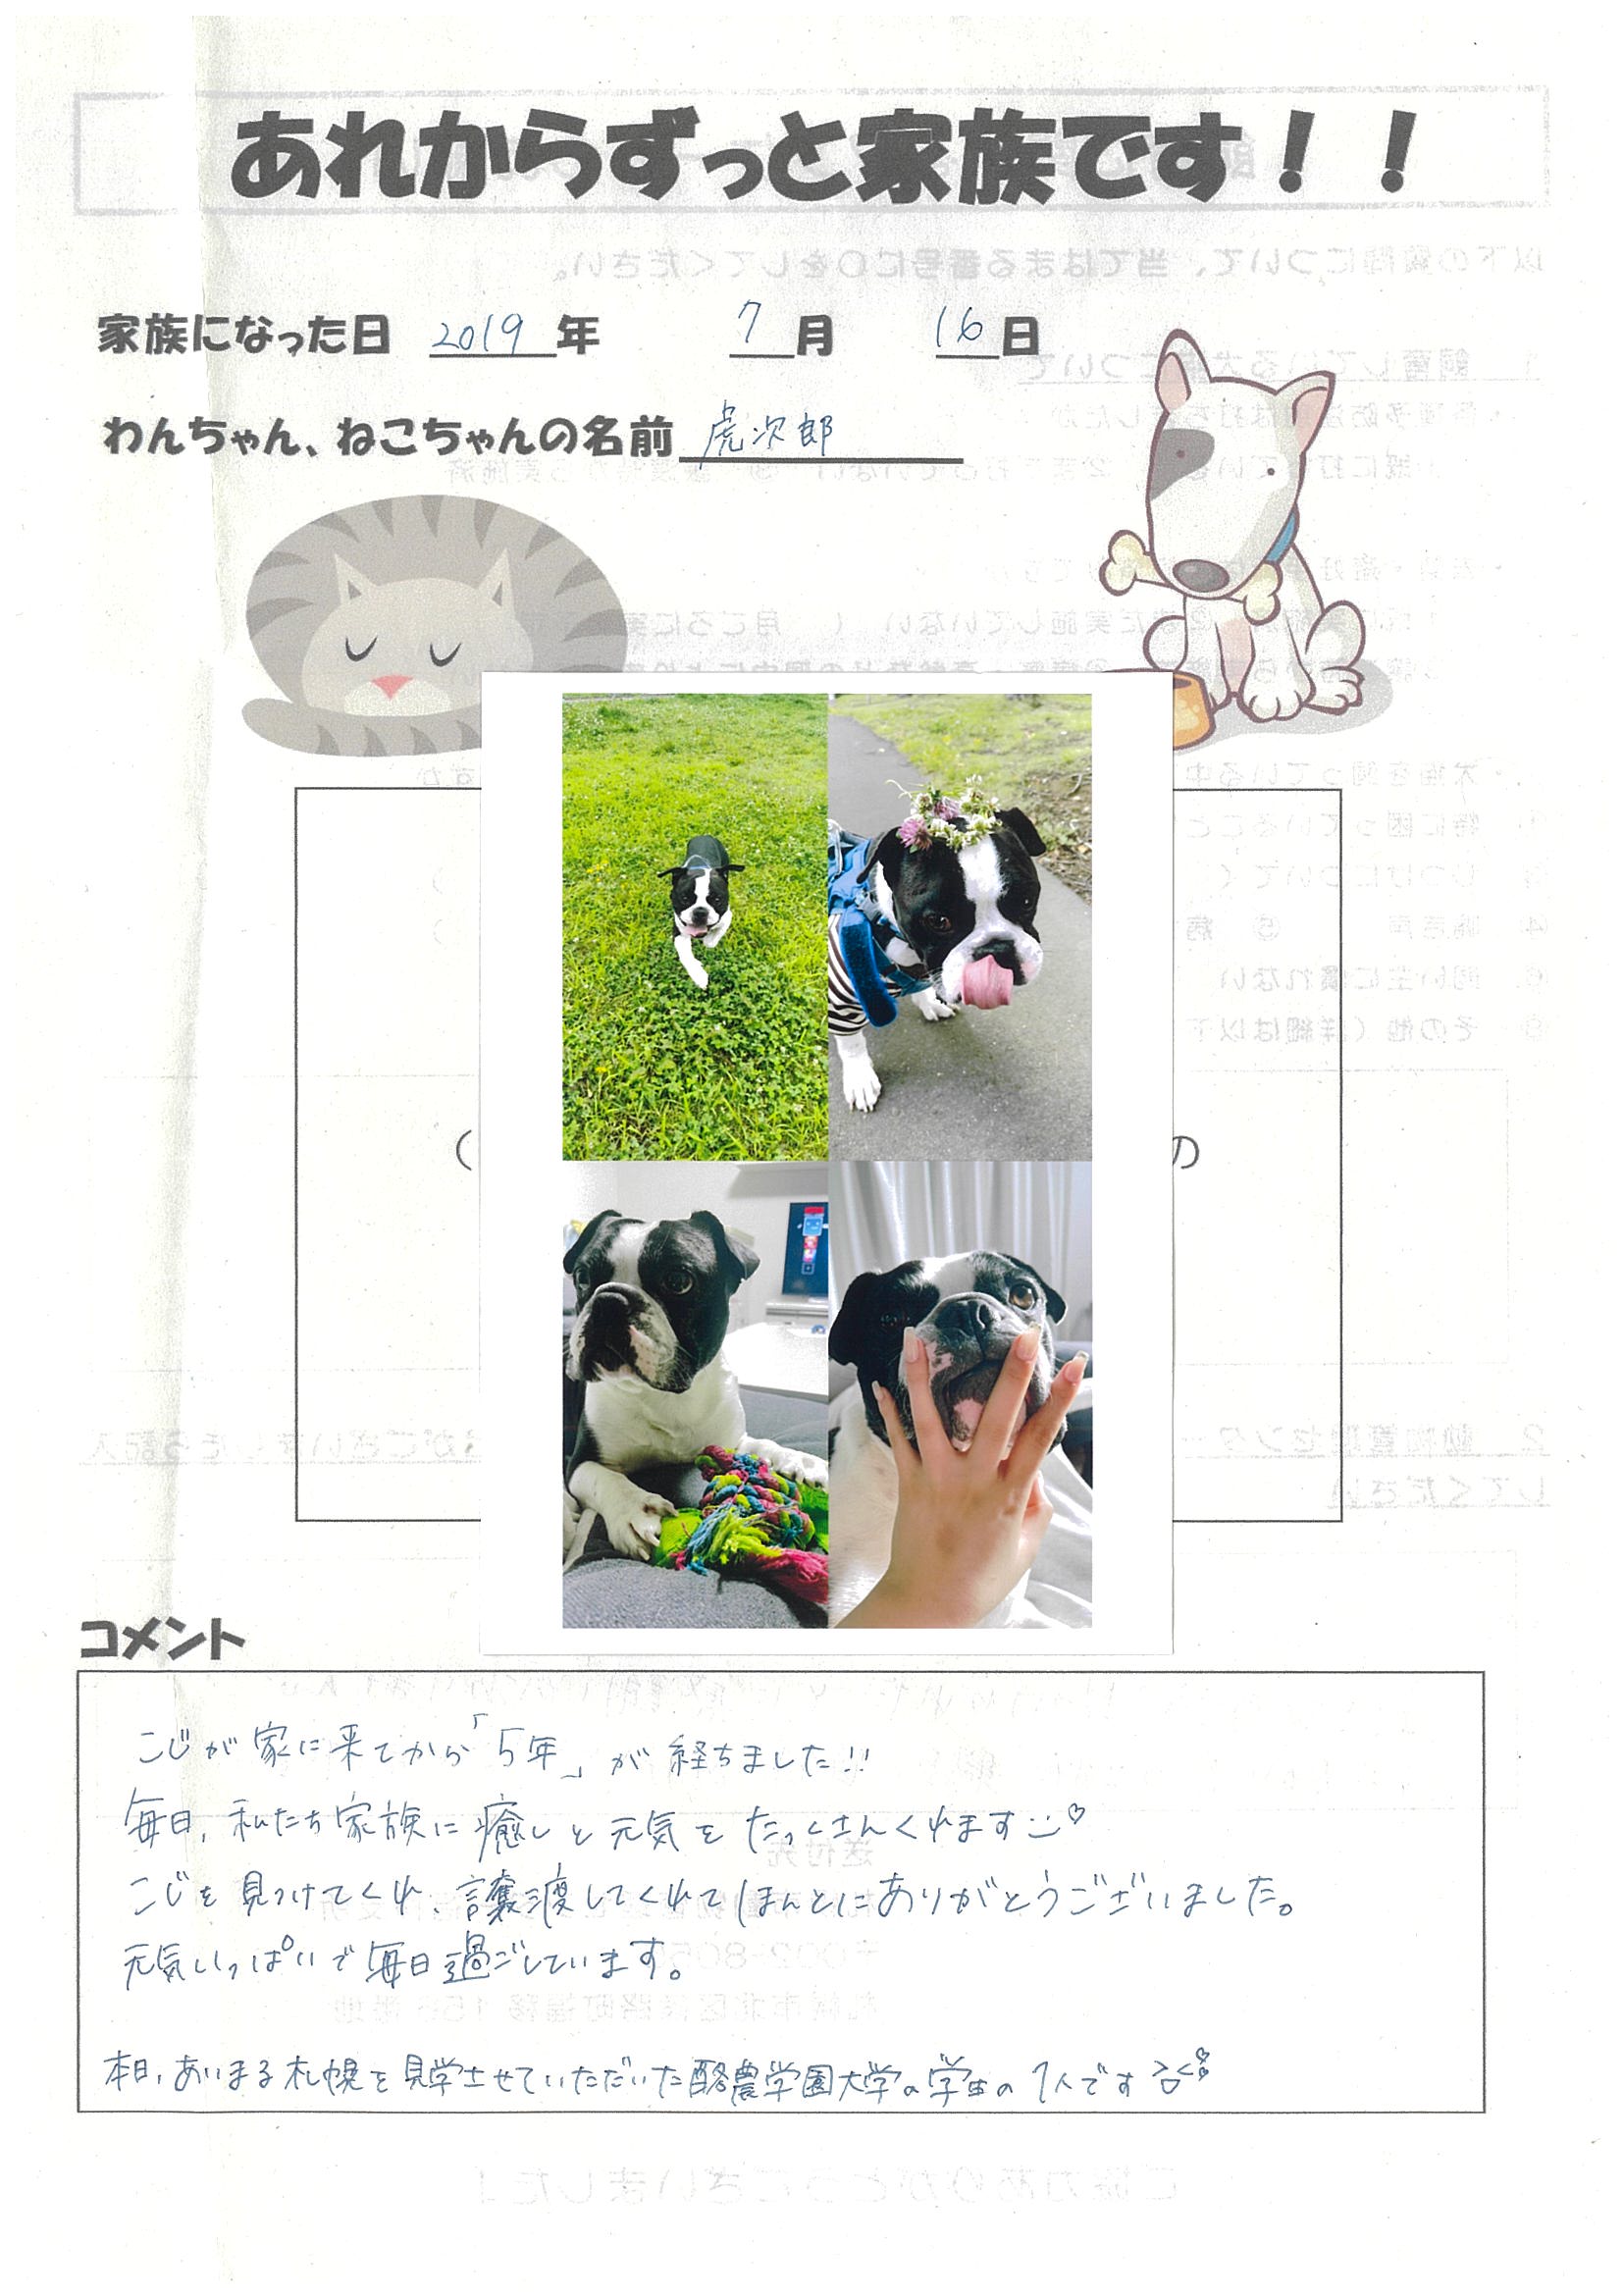 あれからずっと家族です！！
家族になった日 2019年 7月 16日
わんちゃん、ねこちゃんの名前 虎次郎
( の
コメント
こじが家に来てから「5年」が経ちました!!
毎日、私たち家族に癒しと元気をたっくさんくれます
こじを見つけてくれ、譲渡してくれてほんとにありがとうございました。
元気いっぱいで毎日過ごしています。
本日、あいまる札幌を見学させていただいた酪農学園大学の学生の1人です